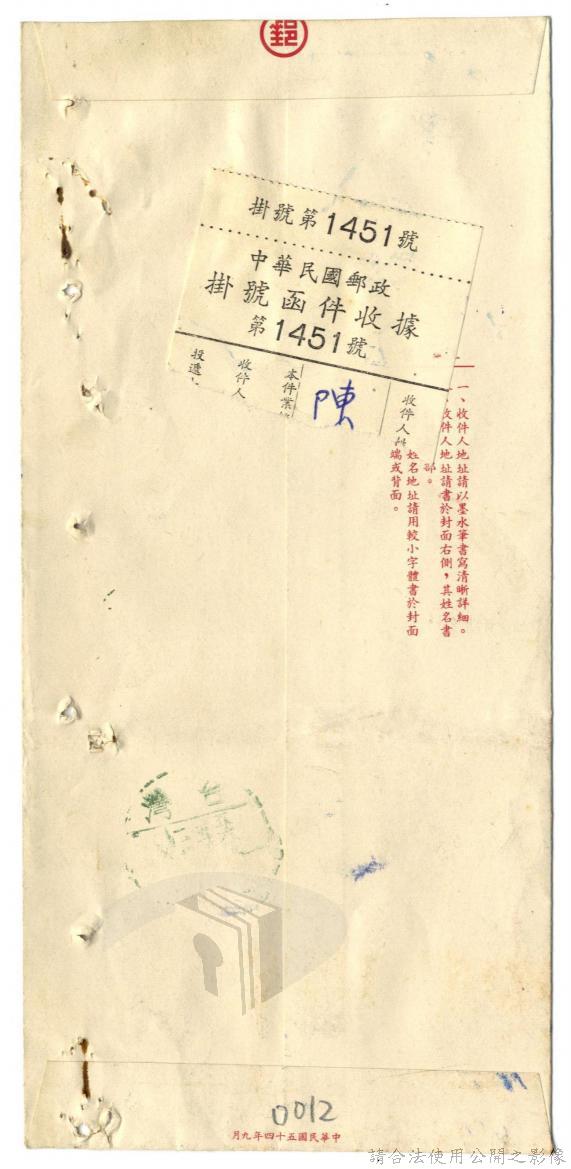 郵
掛號第1451號
中華民國郵政
掛號函件收據
第1451號
收件人
本件業
陳
收件人
投遞
一、收件人地址請以墨水筆書寫清晰詳細。
收件人地址請書於封面右側，其姓名書
部。
姓名地址請用較小字體書於封面
端或背面。
台
灣
0012
中華民國五十四年九月
請合法使用公開之影像